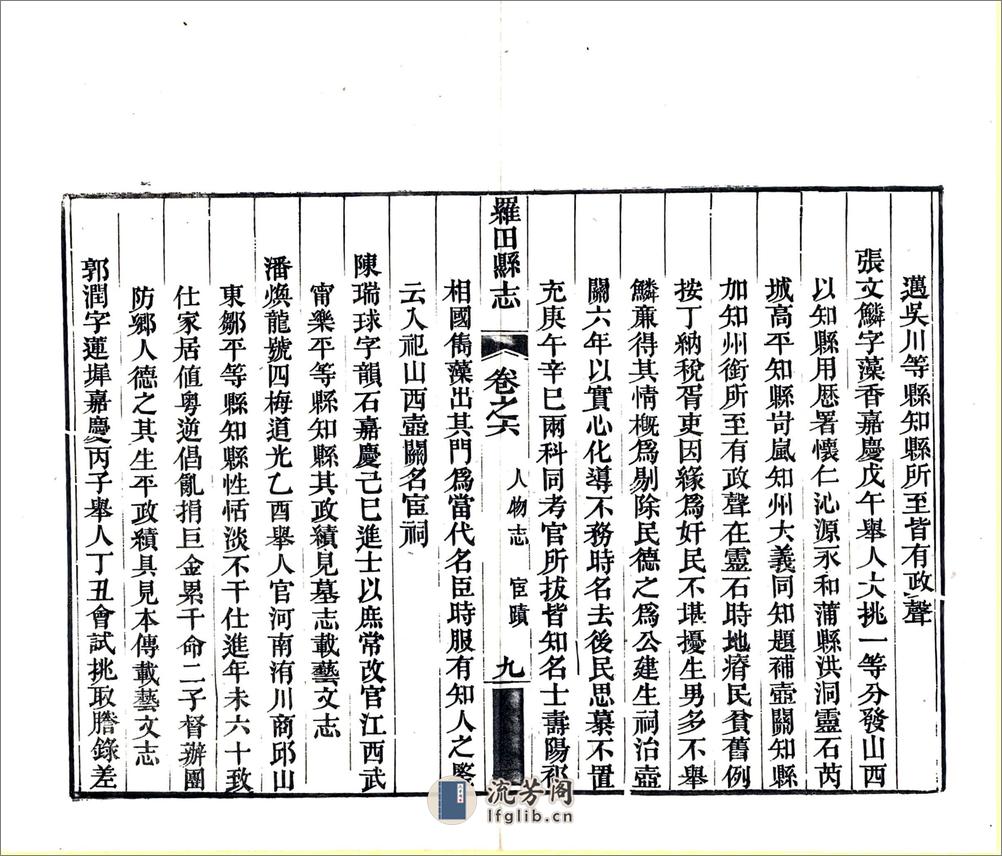 邁吳川等縣知縣所至皆有政聲
張文鱗字藻香嘉慶戊午舉人大挑一等分發山西
以知縣用歷署懷仁沁源永和蒲縣洪洞靈石芮
城高平知縣岢嵐知州大義同知題補壺關知縣
加知州銜所至有政聲在靈石時地瘠民貧舊例
按丁納稅胥吏因緣爲奸民不堪擾生男多不舉
鱗亷得其情概爲剔除民德之爲公建生祠治壺
關六年以實心化導不務時名去後民思慕不置
充庚午辛巳兩科同考官所拔皆知名士壽陽祁
羅田縣志
卷之六
人物志
宦蹟
九
相國雋藻出其門爲當代名臣時服有知人之鑒
云入祀山西壺關名宦祠
陳瑞球字韻石嘉慶己巳進士以庶常改官江西武
甯樂平等縣知縣其政績見墓志載藝文志
潘煥龍號四梅道光乙酉舉人官河南洧川商邱山
東鄒平等縣知縣性恬淡不干仕進年未六十致
仕家居值粵逆倡亂捐巨金累千命二子督辦團
防鄉人德之其生平政績具見本傳載藝文志
郭潤字蓮墀嘉慶丙子舉人丁丑會試挑取謄錄差
流芳阁
lfglib.cn